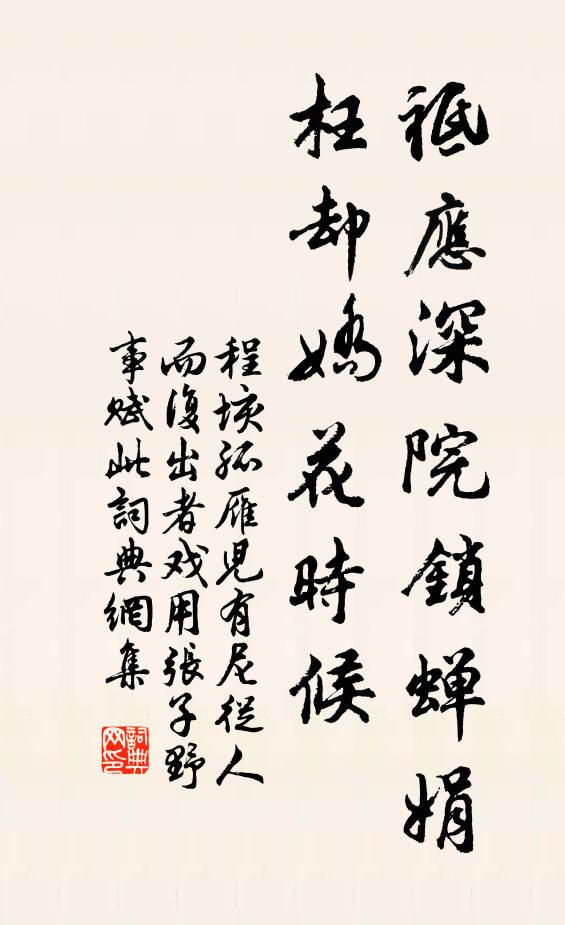 祗應深院鎖蝉娟
枉却嬌花時候
程垓孤雁児有尼從人
而復出者戏用張子野
事賦此詞典網集
詞典
网印